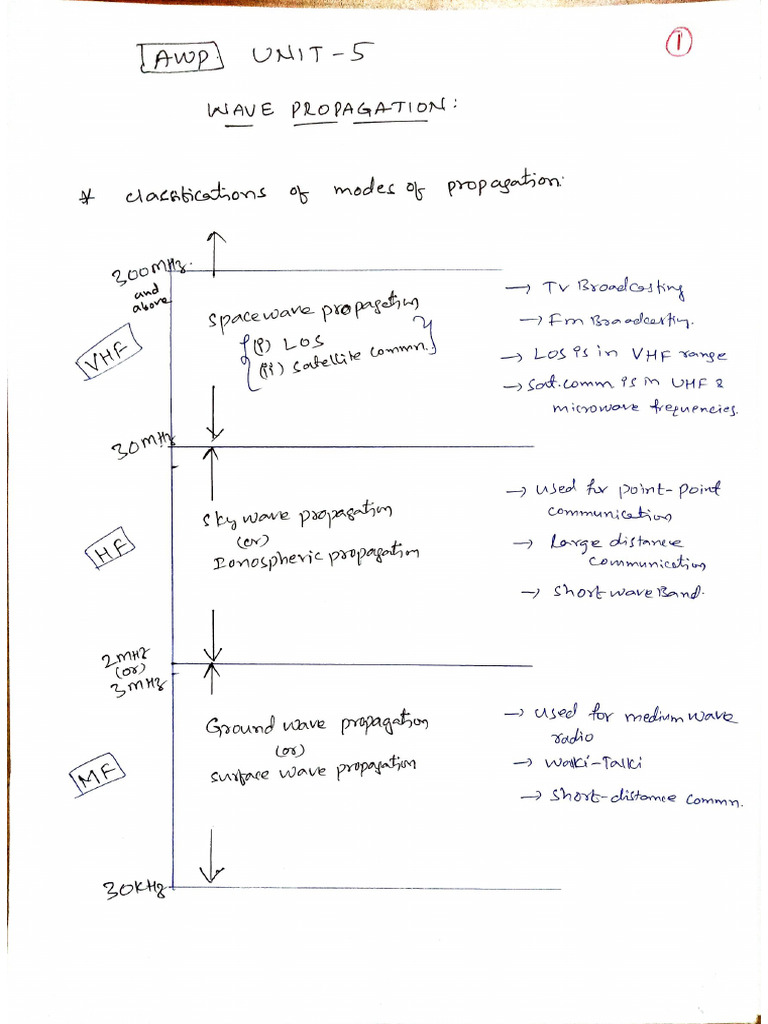 AWP UNIT-5
1
WAVE PROPAGATION:
* classifications of modes of propagation:
300MHz.
and
above
VHF
spacewave propagation
(i) LOS
(ii) satellite commn.
→ TV Broadcasting
→ Fm Broadcasting.
→ LOS is in VHF range
→ sat.comm is in UHF &
microwave frequencies.
30MHz
HF
sky wave propagation
(or)
Ionospheric propagation
→ used for point-point
communication
→ Large distance
communication
→ short wave Band.
2MHz
(or)
3MHz
MF
Ground wave propagation
(or)
surface wave propagation
→ used for medium wave
radio
→ Walki-Talki
→ short-distance commn.
30KHz